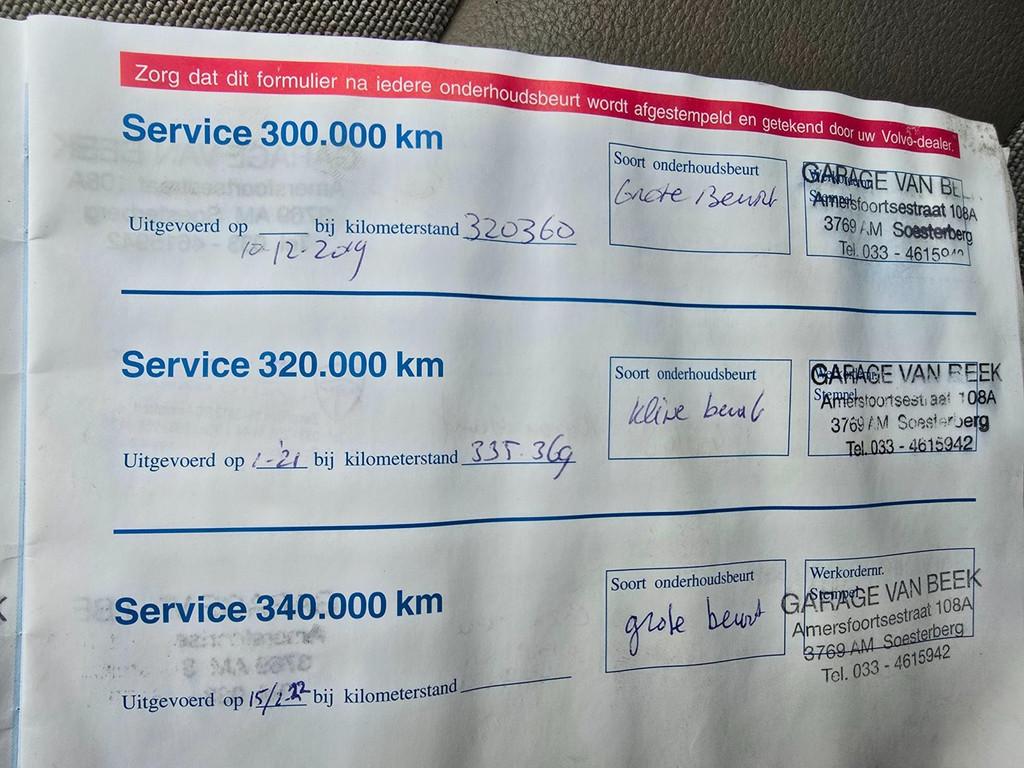 Zorg dat dit formulier na iedere onderhoudsbeurt wordt afgestempeld en getekend door uw Volvo-dealer.
Service 300.000 km
Soort onderhoudsbeurt
Grote Beurt
Werkordernr.
Stempel
GARAGE VAN BEE
Amersfoortsestraat 108A
3769 AM Soesterberg
Tel. 033 - 4615942
Uitgevoerd op ____ bij kilometerstand 320360
10-12-2019
Service 320.000 km
Soort onderhoudsbeurt
kleine beurt
Werkordernr.
Stempel
GARAGE VAN BEEK
Amersfoortsestraat 108A
3769 AM Soesterberg
Tel. 033 - 4615942
Uitgevoerd op 1-'21 bij kilometerstand 335.369
Service 340.000 km
Soort onderhoudsbeurt
grote beurt
Werkordernr.
Stempel
GARAGE VAN BEEK
Amersfoortsestraat 108A
3769 AM Soesterberg
Tel. 033 - 4615942
Uitgevoerd op 15/2-22 bij kilometerstand